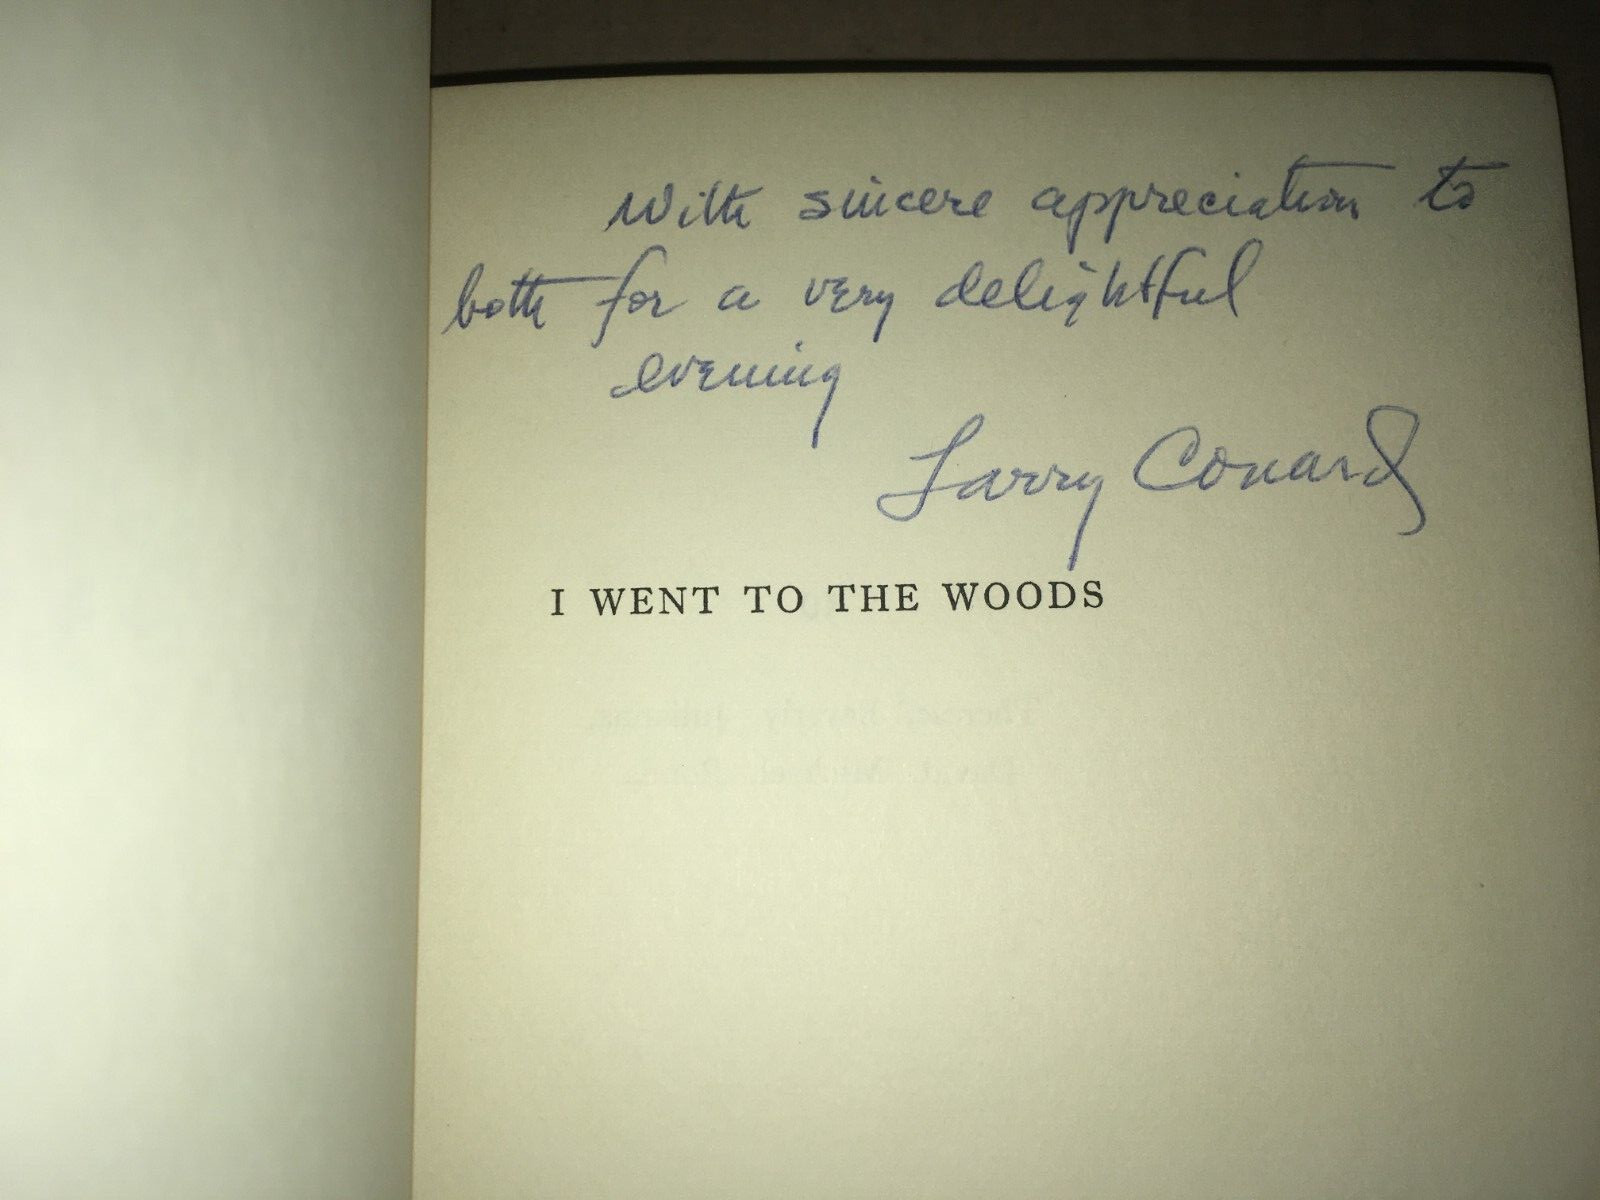 With sincere appreciation to
both for a very delightful
evening
Larry Conard
I WENT TO THE WOODS